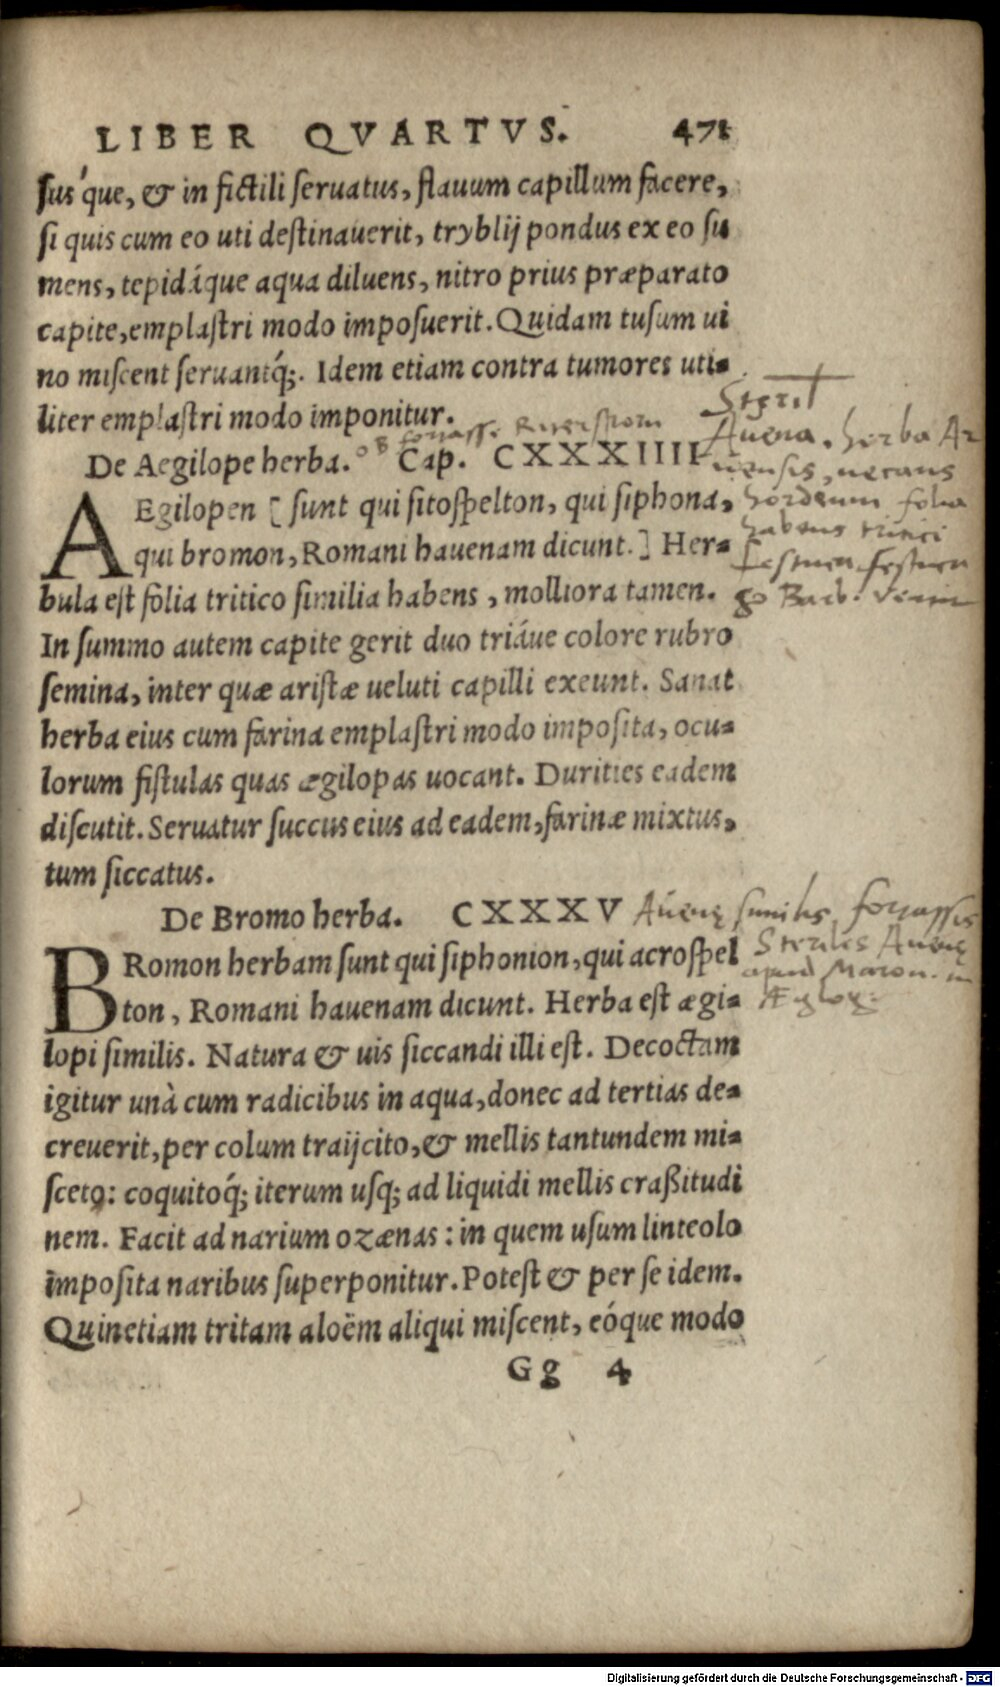 LIBER QVARTVS. 471
sus´que, & in fictili seruatus, flauum capillum facere,
si quis cum eo uti destinauerit, tryblij pondus ex eo su
mens, tepidáque aqua diluens, nitro prius præparato
capite, emplastri modo imposuerit. Quidam tusum ui
no miscent seruantq́;. Idem etiam contra tumores uti-
liter emplastri modo imponitur.
De Aegilope herba. Cap. CXXXIIII
AEgilopen [ sunt qui sitospelton, qui siphona,
qui bromon, Romani hauenam dicunt. ] Her-
bula est folia tritico similia habens, molliora tamen.
In summo autem capite gerit duo triáue colore rubro
semina, inter quæ aristæ ueluti capilli exeunt. Sanat
herba eius cum farina emplastri modo imposita, ocu-
lorum fistulas quas ægilopas uocant. Durities eadem
discutit. Seruatur succus eius ad eadem, farinæ mixtus,
tum siccatus.
Steril
Auena. herba
necans
hordeum folia
habens tritici
Festuca festuca
go Barb.
De Bromo herba. CXXXV Auenę similis forassis
Steriles Auenę
apud Maron. in
Æglog.
BRomon herbam sunt qui siphonion, qui acrospel
ton, Romani hauenam dicunt. Herba est ægi-
lopi similis. Natura & uis siccandi illi est. Decoctam
igitur unà cum radicibus in aqua, donec ad tertias de-
creuerit, per colum traijcito, & mellis tantundem mi-
sceto: coquitoq́; iterum usq; ad liquidi mellis craßitudi
nem. Facit ad narium ozænas: in quem usum linteolo
imposita naribus superponitur. Potest & per se idem.
Quinetiam tritam aloëm aliqui miscent, eóque modo
Gg 4
Digitalisierung gefördert durch die Deutsche Forschungsgemeinschaft - DFG